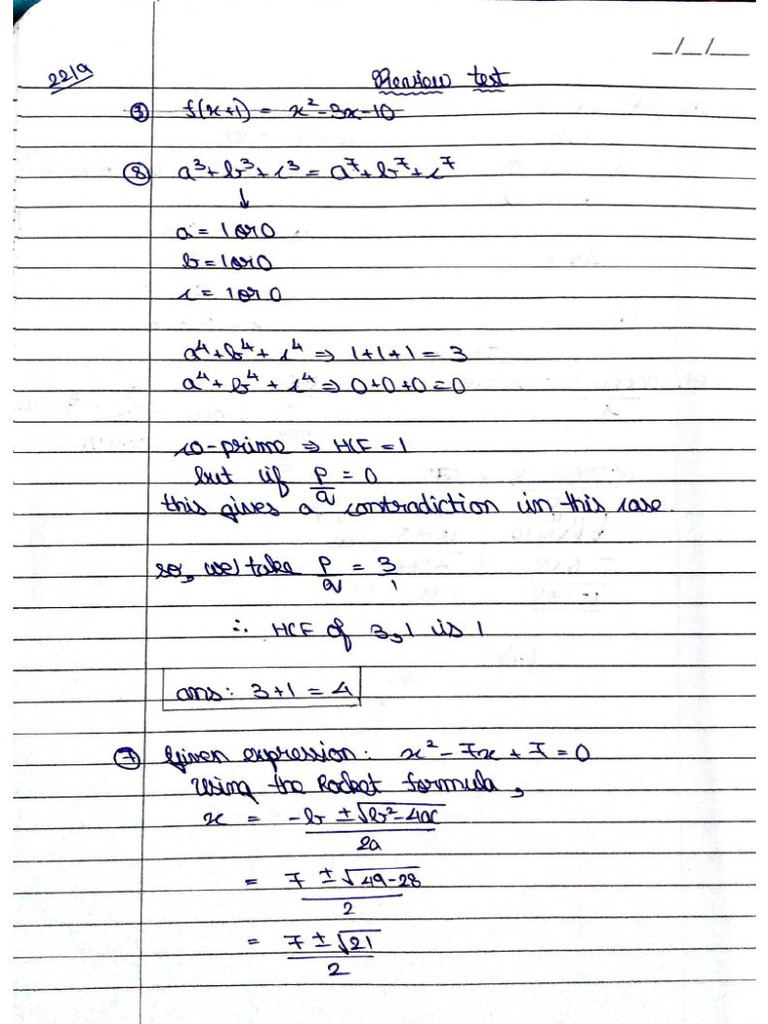 __/__/__
22/9
Review test
③ f(x+1) = x² - 3x - 10
⑧ a³ + b³ + c³ = a⁷ + b⁷ + c⁷
↓
a = 1 or 0
b = 1 or 0
c = 1 or 0
a⁴ + b⁴ + c⁴ ⇒ 1+1+1 = 3
a⁴ + b⁴ + c⁴ ⇒ 0+0+0 = 0
co-prime ⇒ HCF = 1
but if p/q = 0
this gives a contradiction in this case.
so, we take p/q = 3/1
∴ HCF of 3, 1 is 1
ans: 3+1 = 4
⑦ Given expression: x² - 7x + 7 = 0
Using the Rocket formula,
x = -b ± √b² - 4ac / 2a
= 7 ± √49 - 28 / 2
= 7 ± √21 / 2